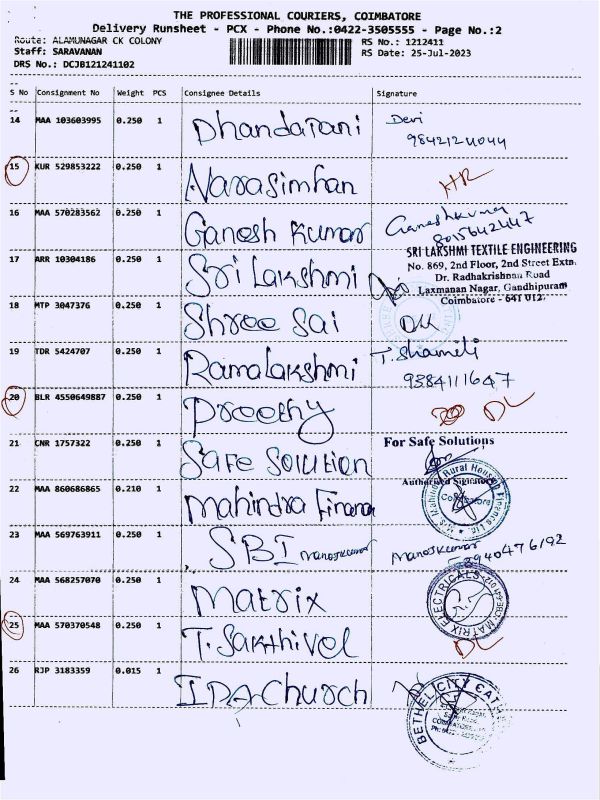 THE PROFESSIONAL COURIERS, COIMBATORE
Delivery Runsheet - PCX - Phone No.:0422-3505555 - Page No.:2
Route: ALAMUNAGAR CK COLONY RS No.: 1212411
Staff: SARAVANAN RS Date: 25-Jul-2023
DRS No.: DCJB121241102
S No Consignment No Weight PCS Consignee Details Signature
14 MAA 103603995 0.250 1 Dhandapani Devi
9842124044
15 KUR 529853222 0.250 1 Narasimhan HR
16 MAA 570283562 0.250 1 Ganesh Kumar Ganeshkumar
8015642447
17 ARR 10304186 0.250 1 Sri Lakshmi
SRI LAKSHMI TEXTILE ENGINEERING
No. 869, 2nd Floor, 2nd Street Extn.
Dr. Radhakrishnan Road
Laxmanan Nagar, Gandhipuram
Coimbatore - 641 012.
18 MTP 3047376 0.250 1 Shree Sai
19 TDR 5424707 0.250 1 Ramalakshmi T. Shamili
9384111647
20 BLR 4550649887 0.250 1 Preethy DL
21 CNR 1757322 0.250 1 Safe Solution For Safe Solutions
Authorised Signatory
22 MAA 860686865 0.210 1 Mahindra Finance
Rural Housing Finance
Coimbatore
23 MAA 569763911 0.250 1 SBI Manojkumar Manojkumar
8940476192
24 MAA 568257070 0.250 1 Matrix
MATRIX ELECTRICALS
25 MAA 570370548 0.250 1 T. Sakthivel DL
26 RJP 3183359 0.015 1 IPA Church
BETHEL CITY